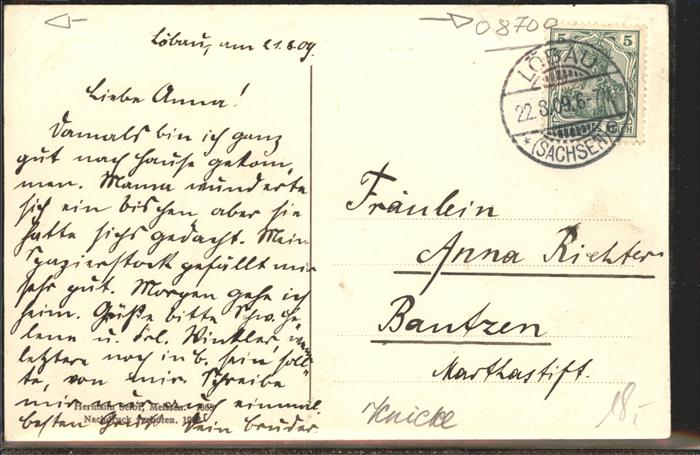 08700
Löbau, am 21.8.09.
Liebe Anna!
Damals bin ich ganz
gut nach Hause gekom-
men. Mama wunderte
sich ein bischen aber sie
hatte sichs gedacht. Mein
Spazierstock gefällt mir
sehr gut. Morgen gehe ich
heim. Grüße bitte Schw. He-
lene u. Frl. Winkler, wenn
letztere noch in B. sein soll-
te, von mir. Schreibe
mir auch einmal
besten Gruß Dein Bruder
Nachdruck verboten.
5 5
LÖBAU
22.8.09.6
*(SACHSEN)
Fräulein
Anna Richter
Bautzen
Marthastift.
Knicke
18,-